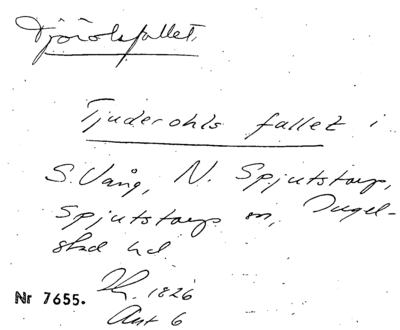 Tjörolsfallet.
Tjuderohls fallet i
S. Vång, N. Spjutstorp,
Spjutstorps sn, Ingel-
stad hd.
1826
Nr 7655.
Akt 6